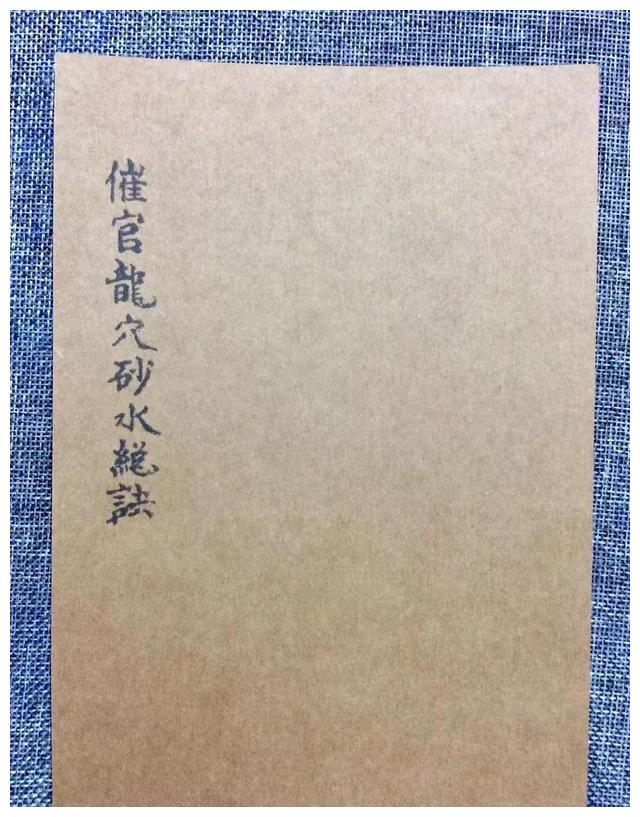 催官龍穴砂水総訣